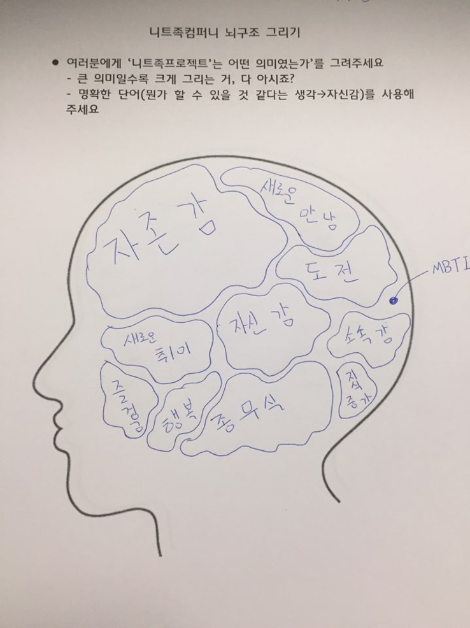 니트족컴퍼니 뇌구조 그리기
● 여러분에게 '니트족프로젝트'는 어떤 의미였는가'를 그려주세요
- 큰 의미일수록 크게 그리는 거, 다 아시죠?
- 명확한 단어(뭔가 할 수 있을 것 같다는 생각→자신감)를 사용해
주세요
자존감
새로운
만남
도전
MBTI
자신감
소속감
새로운
취미
즐거움
행복
종무식
지식
증가